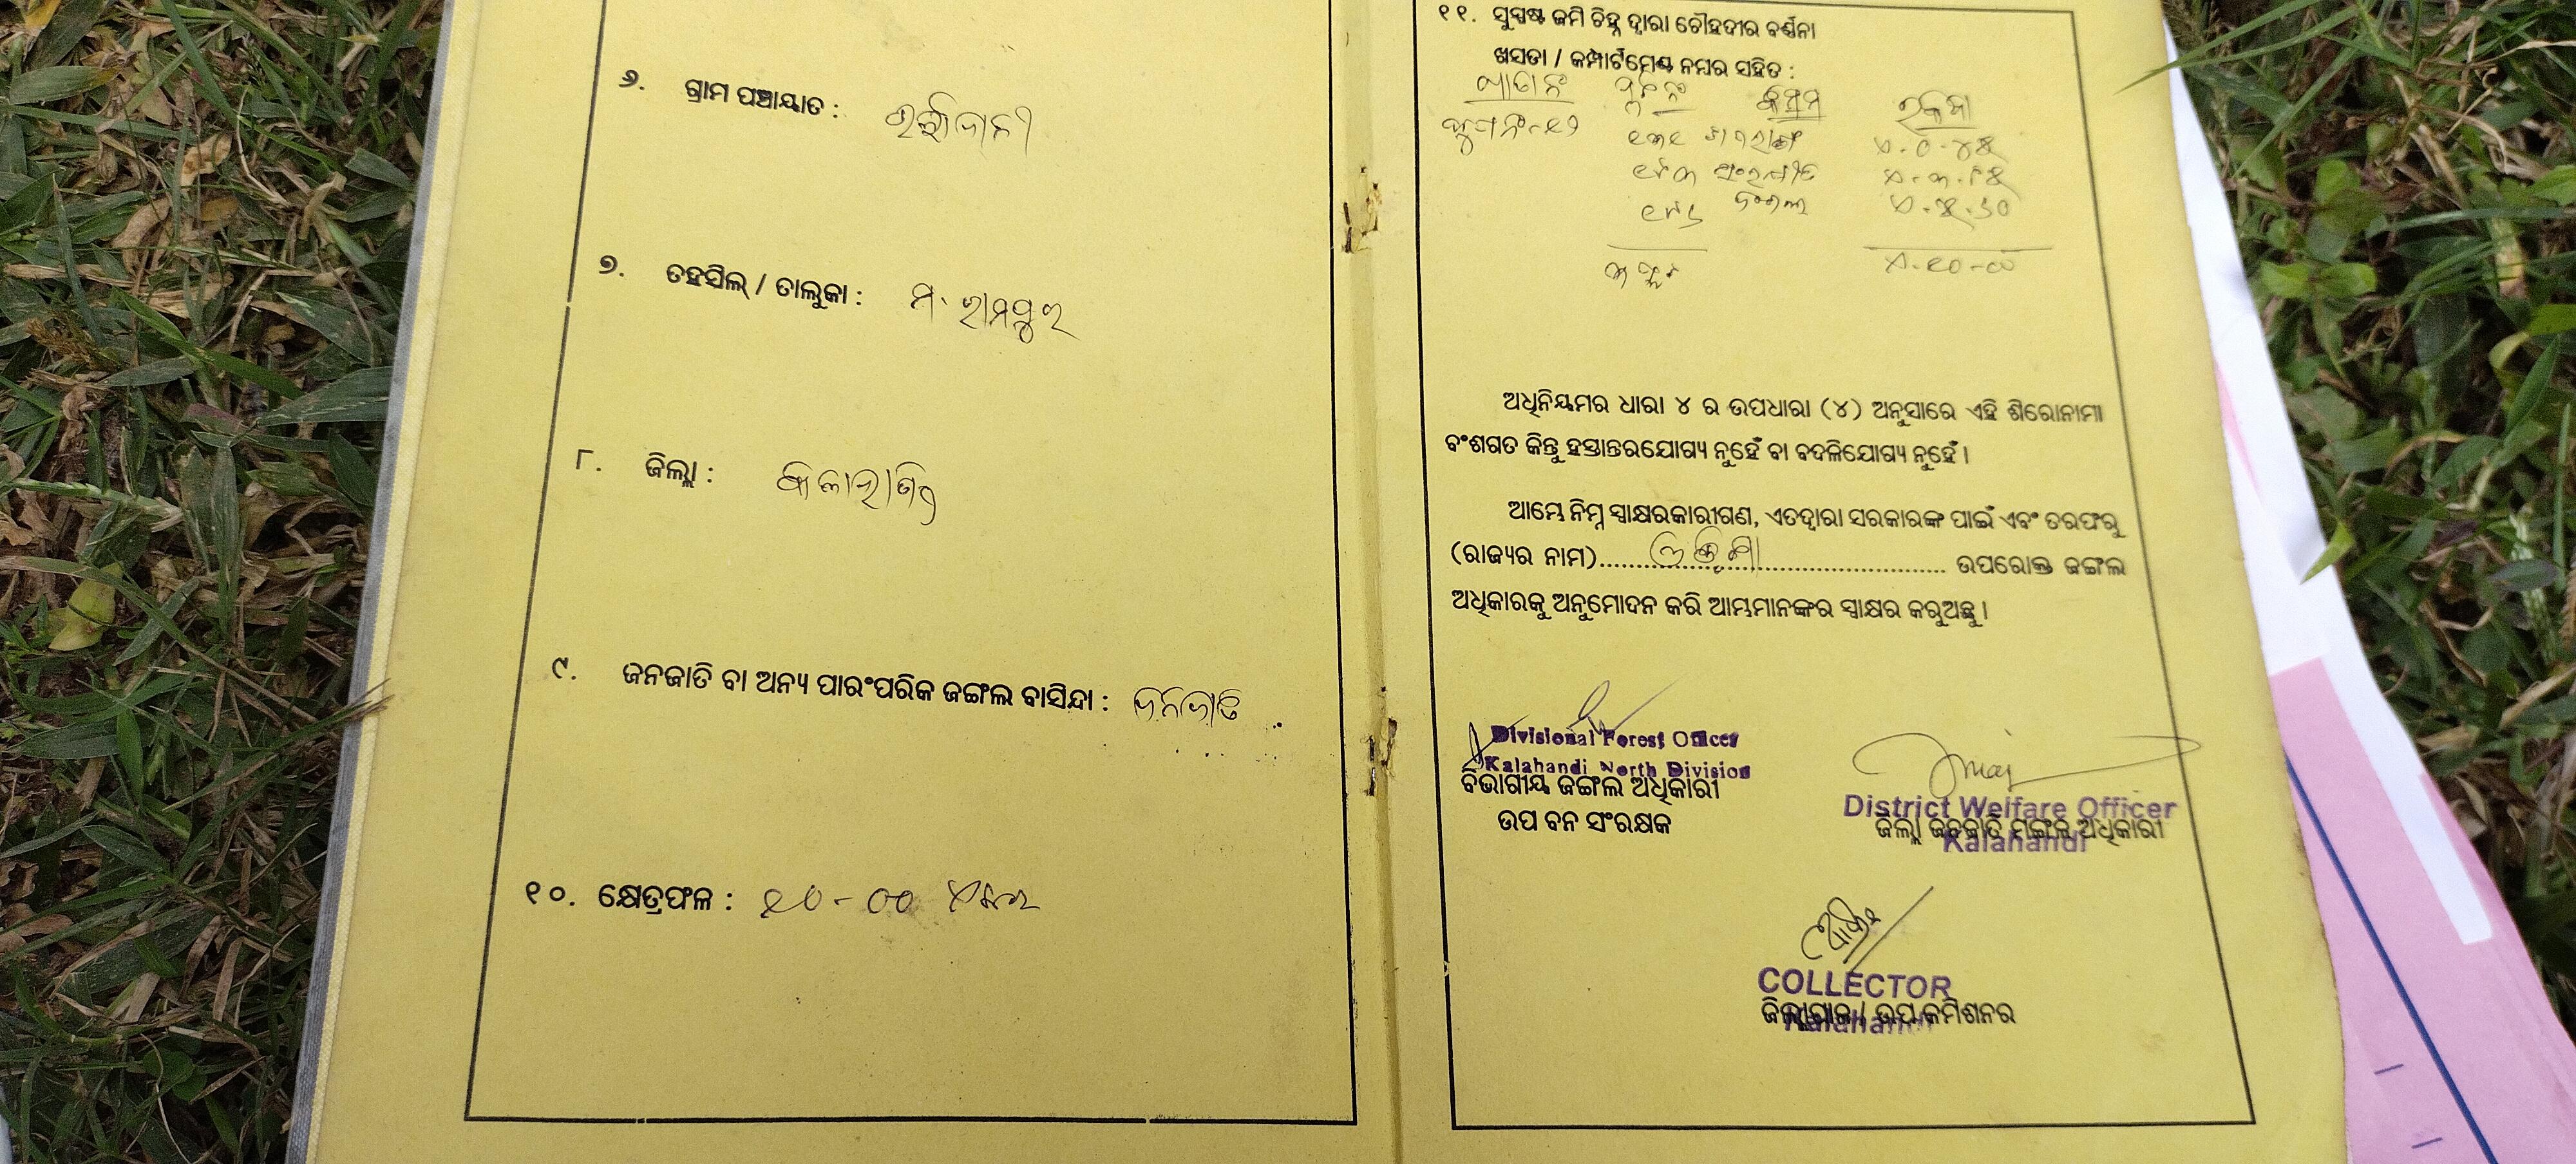 ୬. ଗ୍ରାମ ପଞ୍ଚାୟାତ :
୭. ତହସିଲ୍ / ତାଲୁକା : ମ. ରାମପୁର
୮. ଜିଲ୍ଲା : କଳାହାଣ୍ଡି
୯. ଜନଜାତି ବା ଅନ୍ୟ ପାରଂପରିକ ଜଙ୍ଗଲ ବାସିନ୍ଦା : ଜନଜାତି
୧୦. କ୍ଷେତ୍ରଫଳ : ୧୦-୦୦ ଏକର
୧୧. ସୁସ୍ପଷ୍ଟ ଜମି ଚିହ୍ନ ଦ୍ୱାରା ଚୌହଦୀର ବର୍ଣ୍ଣନା
ଖସଡା / କମ୍ପାର୍ଟମେଣ୍ଟ ନମ୍ବର ସହିତ :
ଖାତା ନଂ ପ୍ଲଟ ନଂ କିସମ ରକବା
ଜଙ୍ଗଲ
୩ ପ୍ଲଟ ଏ-୧୦-୦୦
ଅଧିନିୟମର ଧାରା ୪ ର ଉପଧାରା (୪) ଅନୁସାରେ ଏହି ଶିରୋନାମା
ବଂଶଗତ କିନ୍ତୁ ହସ୍ତାନ୍ତରଯୋଗ୍ୟ ନୁହେଁ ବା ବଦଳିଯୋଗ୍ୟ ନୁହେଁ ।
ଆମ୍ଭେ ନିମ୍ନ ସ୍ୱାକ୍ଷରକାରୀଗଣ, ଏତଦ୍ୱାରା ସରକାରଙ୍କ ପାଇଁ ଏବଂ ତରଫରୁ
(ରାଜ୍ୟର ନାମ)........ଓଡ଼ିଶା........ ଉପରୋକ୍ତ ଜଙ୍ଗଲ
ଅଧିକାରକୁ ଅନୁମୋଦନ କରି ଆମ୍ଭମାନଙ୍କର ସ୍ୱାକ୍ଷର କରୁଅଛୁ ।
Divisional Forest Officer
Kalahandi North Division
ବିଭାଗୀୟ ଜଙ୍ଗଲ ଅଧିକାରୀ
ଉପ ବନ ସଂରକ୍ଷକ
District Welfare Officer
ଜିଲ୍ଲା ଜନଜାତି ମଙ୍ଗଳ ଅଧିକାରୀ
Kalahandi
COLLECTOR
ଜିଲ୍ଲାପାଳ / ଉପ କମିଶନର
Kalahandi